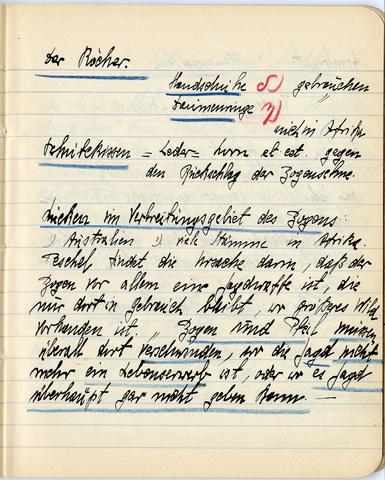 Der Köcher.
Handschuhe 8) gebräuchen
Daumenringe 7)
nicht in Afrika
Schutzkissen = Leder = Horn et cet. gegen
den Rückschlag der Bogensehne.
Lücken im Verbreitungsgebiet des Bogens:
1) Australien 2) viele Stämme in Afrika.
Peschel findet die Ursache darin, daß der
Bogen vor allem eine Jagdwaffe ist, die
nur dort in gebrauch bleibt, wo größeres Wild
vorhanden ist. „Bogen und Pfeil müssen
überall dort verschwinden, wo die Jagd nicht
mehr ein Lebenserwerb ist, oder wo es Jagd
überhaupt gar nicht geben kann. —